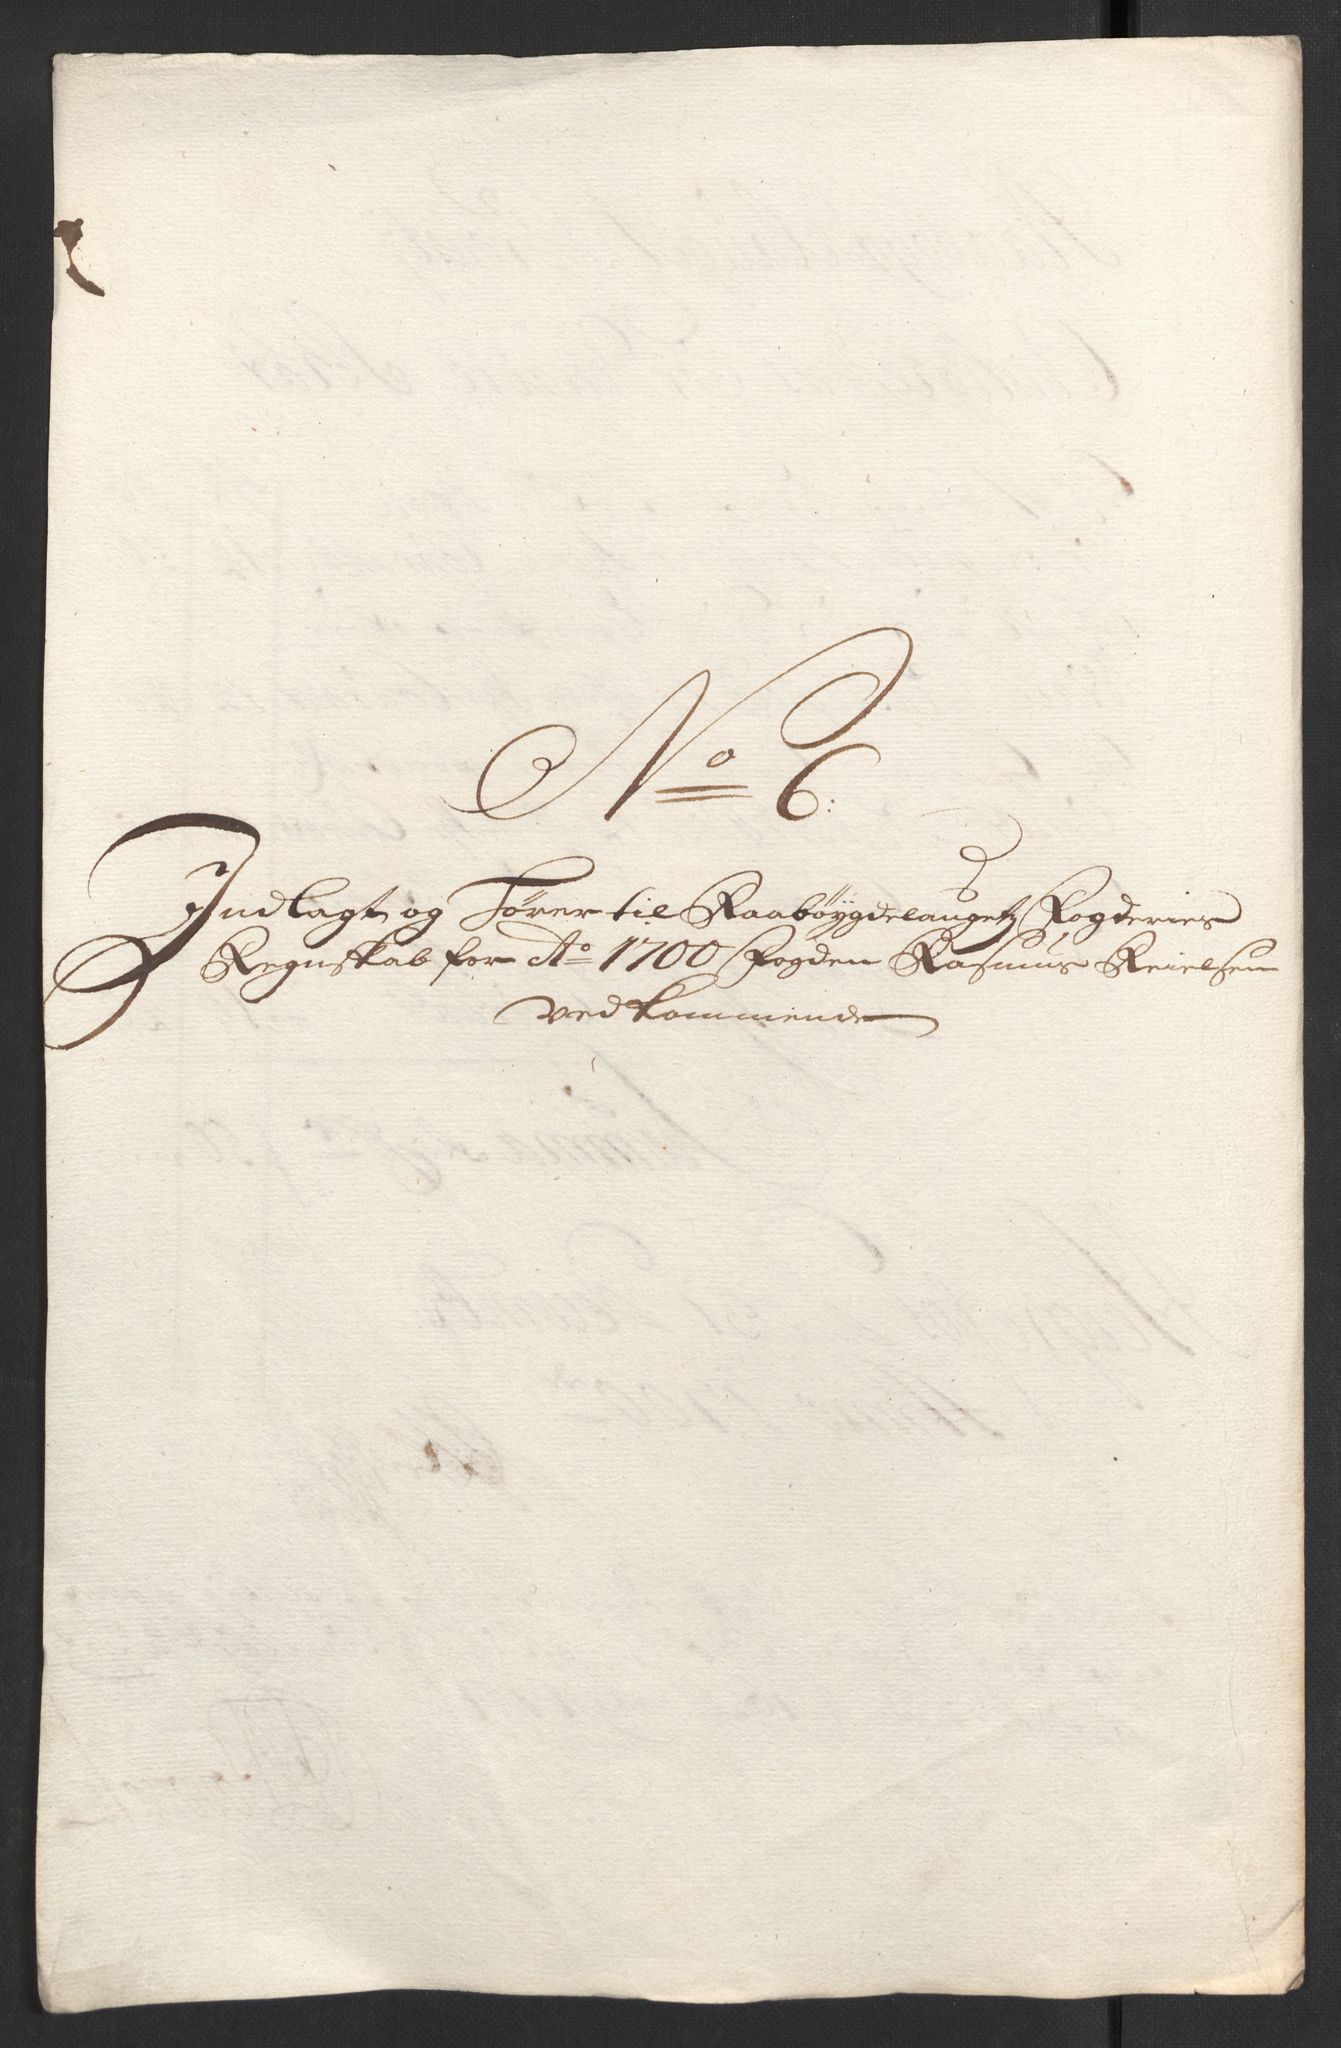 No 6:
Indlagt og Hører til Raabøÿgdelaugetz Fogderies
Regnskab for Ao 1700 Fogden Rasmus Reielsen
vedkommende